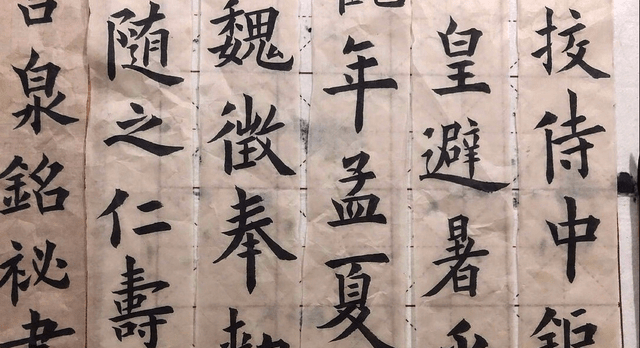 挍侍中鉅
皇避暑
年孟夏
魏徵奉
隨之仁壽
泉銘祕書